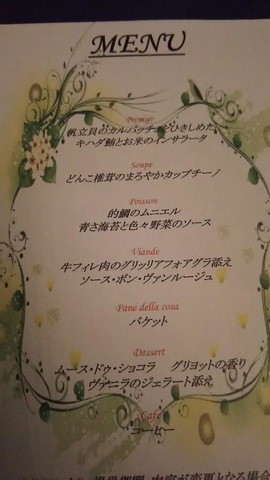 MENU
Premier
帆立貝のカルパッチョをひきしめた
キハダ鮪とお米のインサラータ
Soupe
どんこ椎茸のまろやかカップチーノ
Poisson
的鯛のムニエル
青さ海苔と色々野菜のソース
Viande
牛フィレ肉のグリッリアフォアグラ添え
ソース・ボン・ヴァンルージュ
Pane della cosa
バケット
Dessert
ムース・ドゥ・ショコラ グリヨットの香り
ヴァニラのジェラート添え
Cafe
コーヒー
内容が変更となる場合